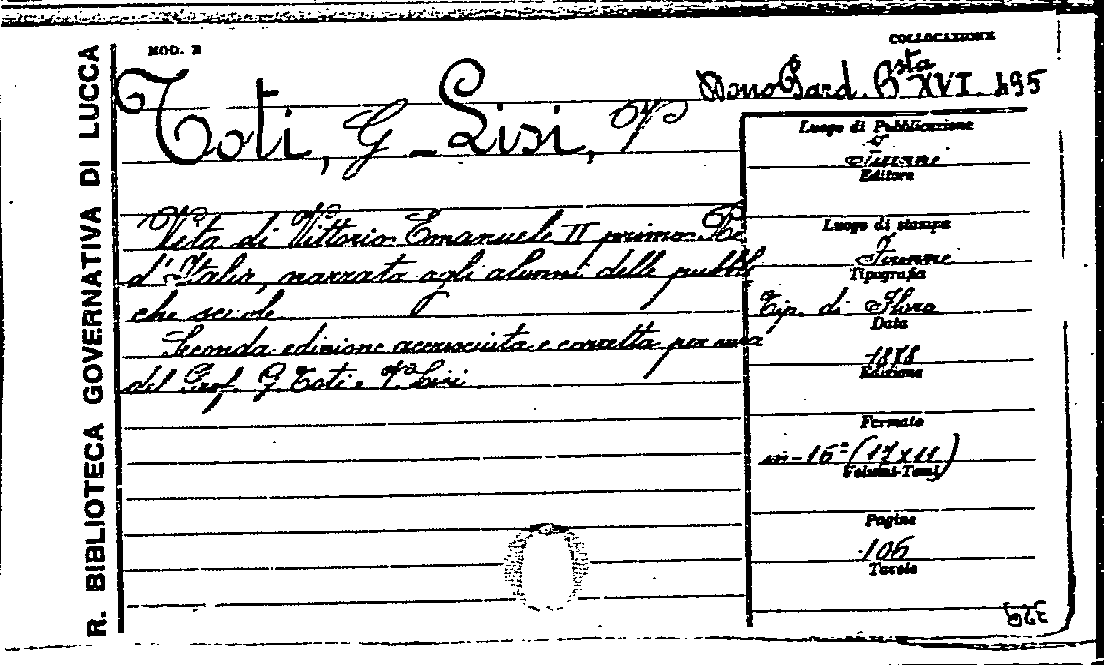 R. BIBLIOTECA GOVERNATIVA DI LUCCA
MOD. B
COLLOCAZIONE
Dono Bard. Bsta XVI. 495
Toti, G - Lisi, P
Vita di Vittorio Emanuele II primo Re
d'Italia, narrata agli alunni delle pubbli
che scuole
Seconda edizione accresciuta e corretta per cura
dei Prof. G. Toti e P. Lisi
Luogo di Pubblicazione
Firenze
Editore
Luogo di stampa
Firenze
Tipografia
Tip. di Flora
Data
1878
Edizione
Formato
in-16º (17x11)
Volumi-Tomi
Pagine
106
Tavole